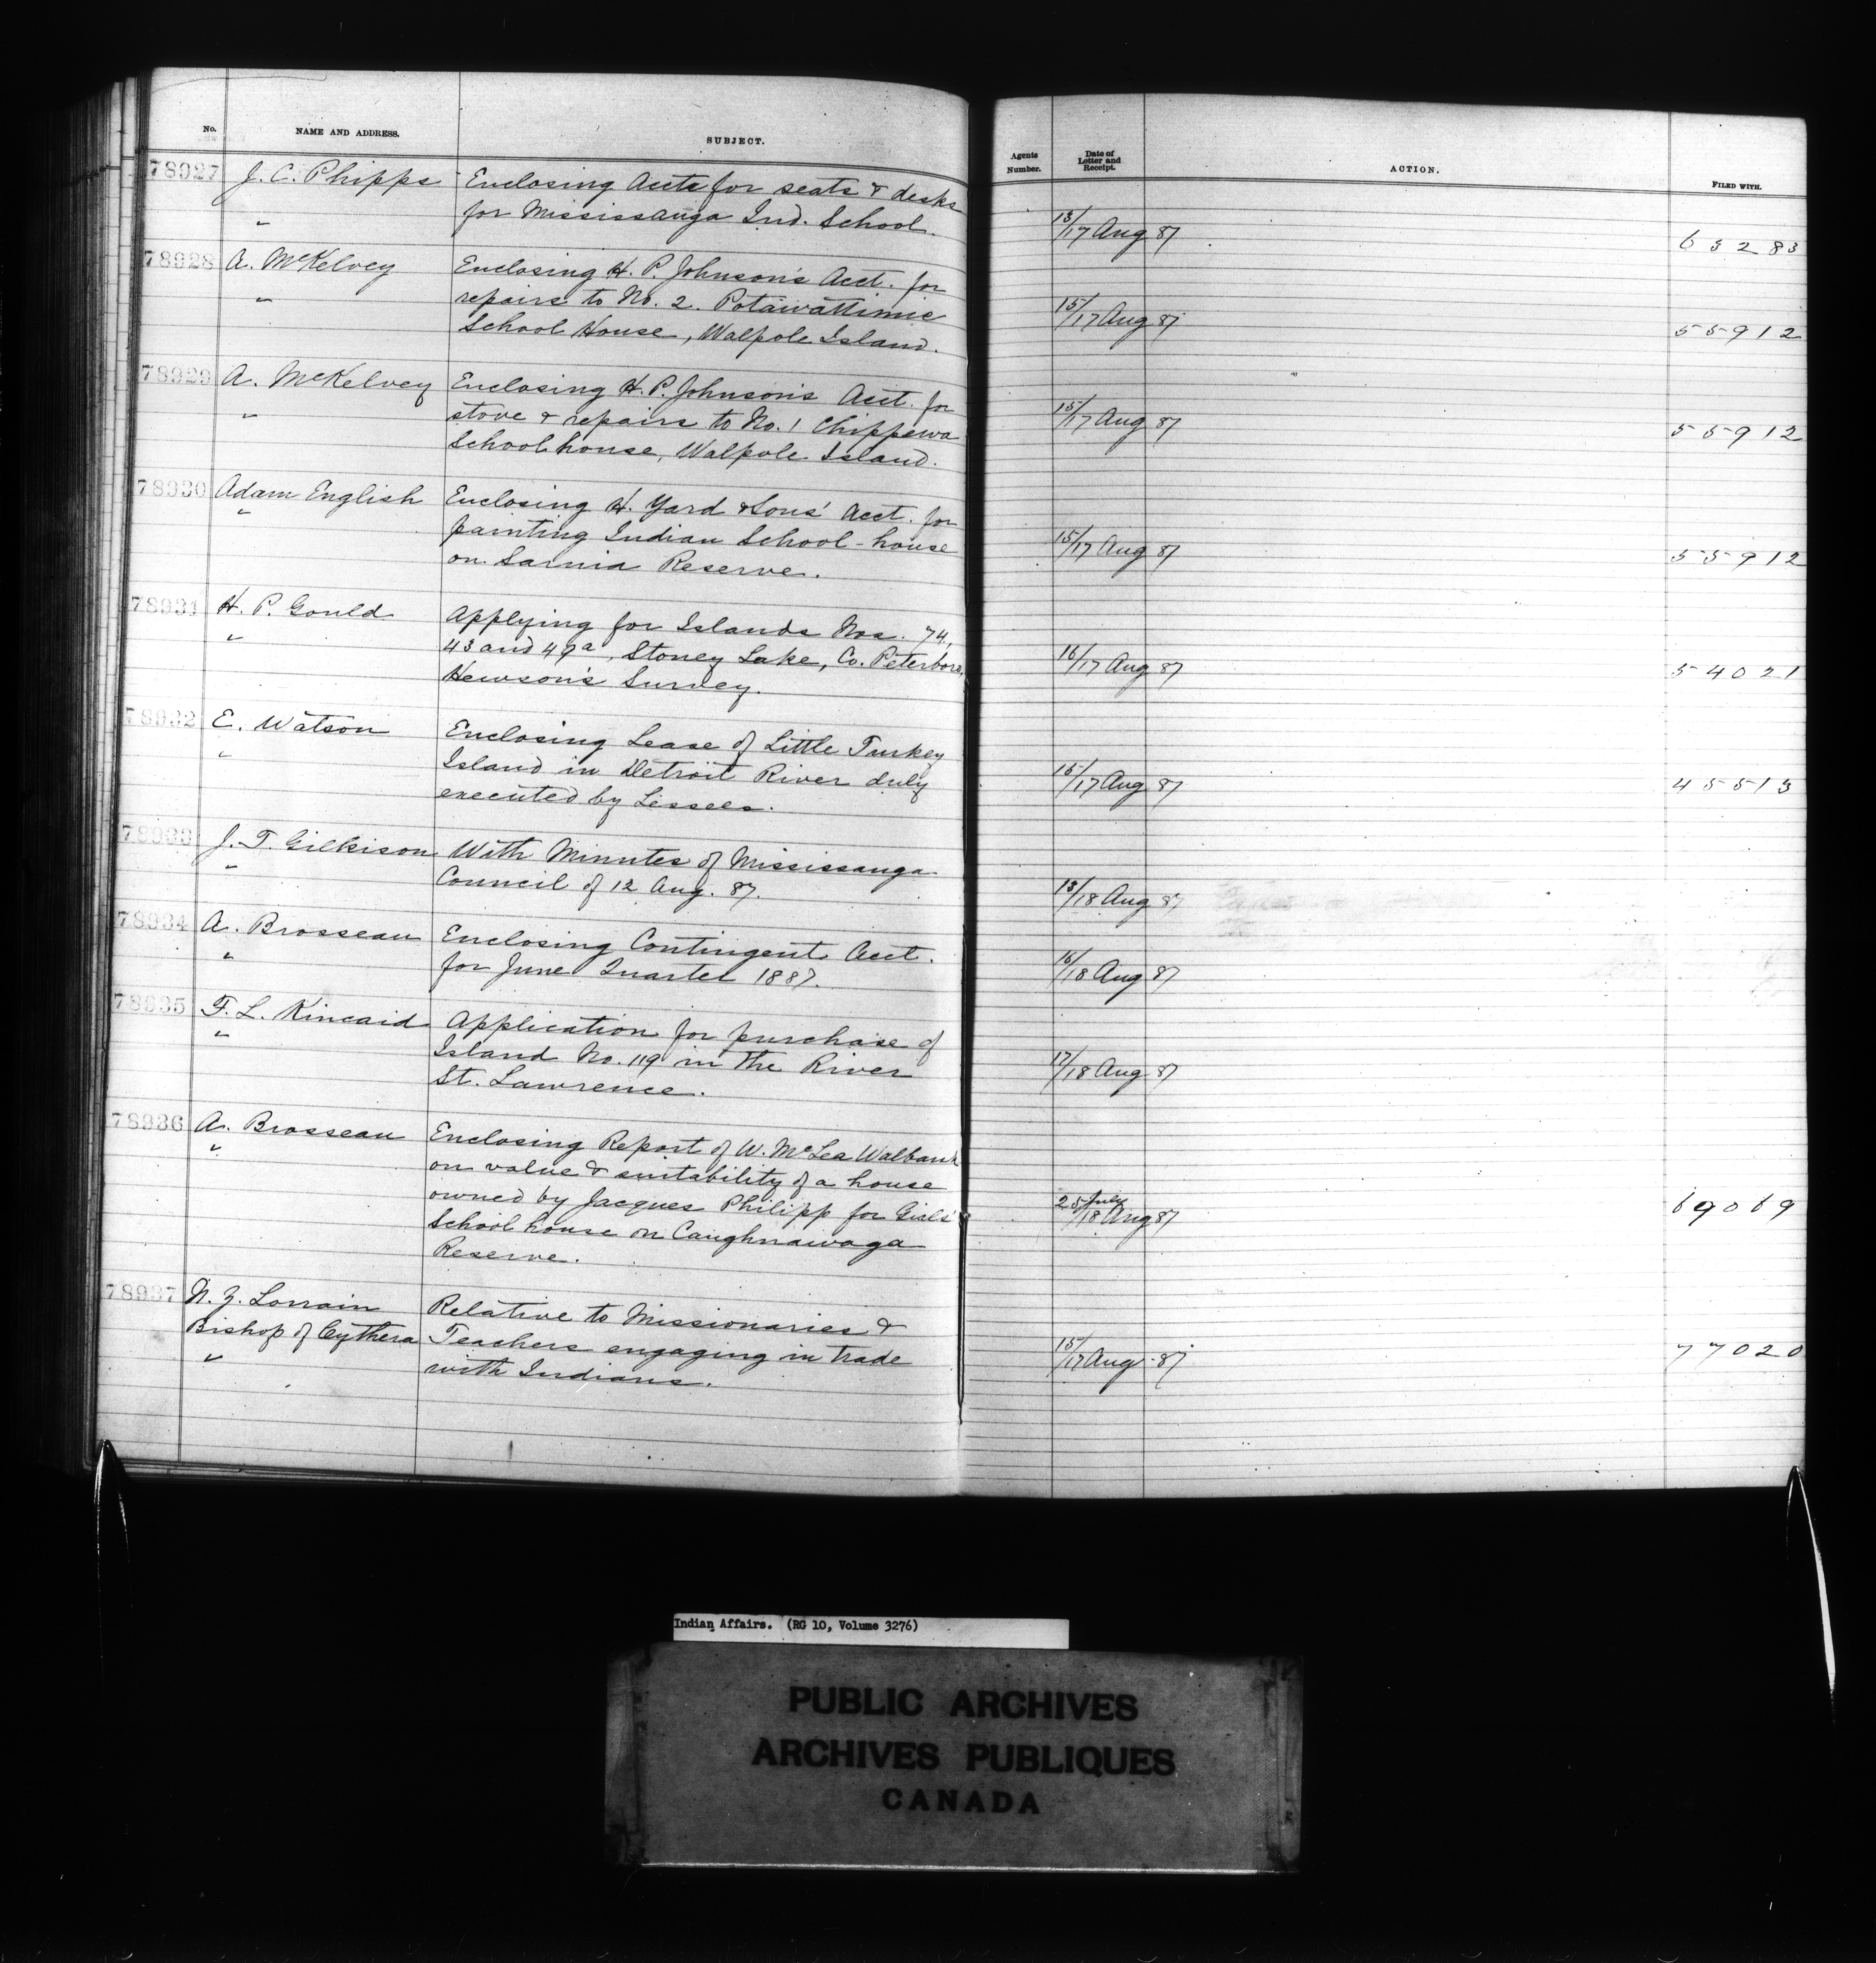 No. NAME AND ADDRESS. SUBJECT. Agents Number. Date of Letter and Receipt. ACTION. FILED WITH.
78927 J. C. Phipps Enclosing Accts for seats & desks
" for Mississauga Ind. School. 13/17 Aug 87 63283
78928 A. McKelvey Enclosing H. P. Johnson's Acct. for
" repairs to No. 2. Potawattimie 15/17 Aug 87 55912
School House, Walpole Island.
78929 A. McKelvey Enclosing H. P. Johnson's Acct. for
" stove & repairs to No. 1 Chippewa 15/17 Aug 87 55912
School house, Walpole Island.
78930 Adam English Enclosing H. Yard & Sons' Acct. for
" painting Indian School-house 15/17 Aug 87 55912
on Sarnia Reserve.
78931 H. P. Gould Applying for Islands Nos. 74,
" 43 and 49a, Stoney Lake, Co. Peterboro, 16/17 Aug 87 54021
Hewson's Survey.
78932 E. Watson Enclosing Lease of Little Turkey
" Island in Detroit River duly 15/17 Aug 87 45513
executed by Lessees.
78933 J. T. Gilkison With Minutes of Mississauga
" Council of 12 Aug. 87. 13/18 Aug 87
78934 A. Brosseau Enclosing Contingent Acct.
" for June Quarter 1887. 16/18 Aug 87
78935 F. L. Kincaid Application for purchase of
" Island No. 119 in the River 17/18 Aug 87
St. Lawrence.
78936 A. Brosseau Enclosing Report of W. McLea Walbank
" on value & suitability of a house
owned by Jacques Philipp for Girls' 25 July/18 Aug 87 69069
School house on Caughnawaga
Reserve.
78937 N. Z. Lorrain Relative to Missionaries &
Bishop of Cythera Teachers engaging in trade 15/17 Aug 87 77020
" with Indians.
Indian Affairs. (RG 10, Volume 3276)
PUBLIC ARCHIVES
ARCHIVES PUBLIQUES
CANADA